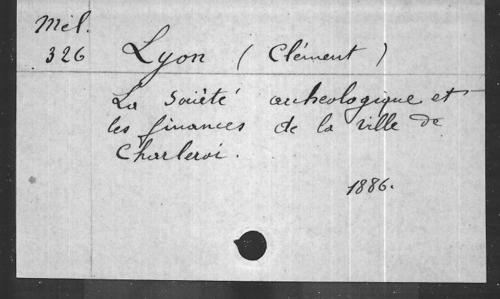 Mél.
326 Lyon (Clément)
La Société archeologique et
les finances de la ville de
Charleroi.
1886.